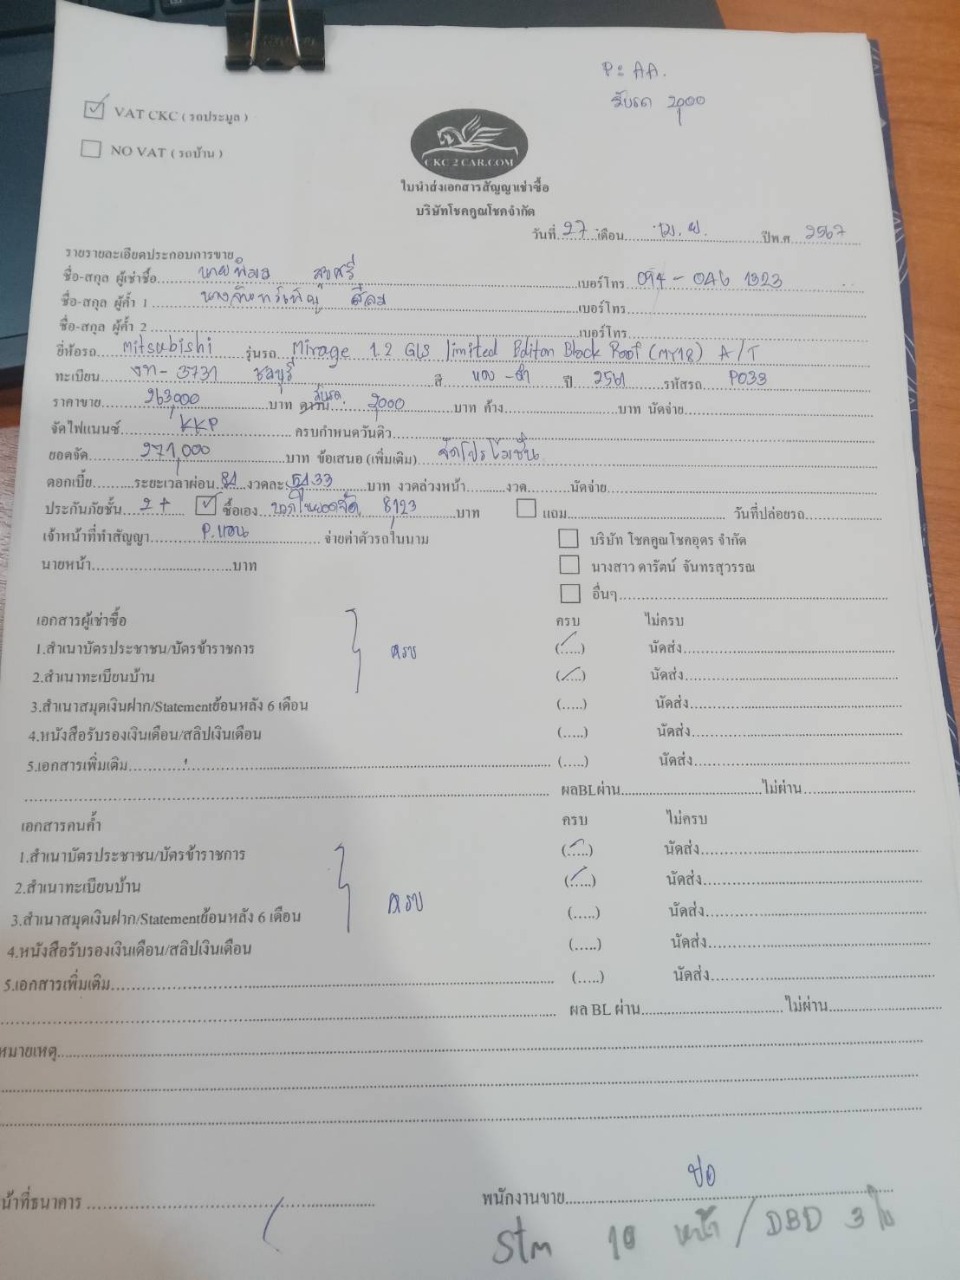 P: AA.
รับรถ 2,000
VAT CKC ( รถประมูล )
NO VAT ( รถบ้าน )
CKC 2 CAR.COM
ใบนำส่งเอกสารสัญญาเช่าซื้อ
บริษัทโชคคูณโชคจำกัด
วันที่ 27 เดือน เม.ย. ปีพ.ศ 2567
รายรายละเอียดประกอบการขาย
ชื่อ-สกุล ผู้เช่าซื้อ เบอร์โทร 094-046 1323
ชื่อ-สกุล ผู้ค้ำ 1 เบอร์โทร
ชื่อ-สกุล ผู้ค้ำ 2 เบอร์โทร
ยี่ห้อรถ Mitsubishi รุ่นรถ Mirage 1.2 GLS limited Editon Black Roof (MY18) A/T
ทะเบียน 3731 ชลบุรี สี แดง-ดำ ปี 2561 รหัสรถ P033
ราคาขาย 263,000 บาท ดาวน์ รับรถ 2000 บาท ค้าง บาท นัดจ่าย
จัดไฟแนนซ์ KKP ครบกำหนดวันดิว
ยอดจัด 271,000 บาท ข้อเสนอ (เพิ่มเติม) จัดโปรโมชั่น
ดอกเบี้ย ระยะเวลาผ่อน 84 งวดละ 5133 บาท งวดล่วงหน้า งวด นัดจ่าย
ประกันภัยชั้น 2+ ซื้อเอง 8123 บาท แถม วันที่ปล่อยรถ
เจ้าหน้าที่ทำสัญญา P. จ่ายค่าตัวรถในนาม
บริษัท โชคคูณโชคอุดร จำกัด
นายหน้า บาท
นางสาว ดารัตน์ จันทรสุวรรณ
อื่นๆ
เอกสารผู้เช่าซื้อ ครบ ไม่ครบ
1.สำเนาบัตรประชาชน/บัตรข้าราชการ ครบ (.....) นัดส่ง
2.สำเนาทะเบียนบ้าน (.....) นัดส่ง
3.สำเนาสมุดเงินฝาก/Statementย้อนหลัง 6 เดือน (.....) นัดส่ง
4.หนังสือรับรองเงินเดือน/สลิปเงินเดือน (.....) นัดส่ง
5.เอกสารเพิ่มเติม (.....) นัดส่ง
ผลBLผ่าน ไม่ผ่าน
เอกสารคนค้ำ ครบ ไม่ครบ
1.สำเนาบัตรประชาชน/บัตรข้าราชการ (.....) นัดส่ง
2.สำเนาทะเบียนบ้าน ครบ (.....) นัดส่ง
3.สำเนาสมุดเงินฝาก/Statementย้อนหลัง 6 เดือน (.....) นัดส่ง
4.หนังสือรับรองเงินเดือน/สลิปเงินเดือน (.....) นัดส่ง
5.เอกสารเพิ่มเติม (.....) นัดส่ง
ผล BL ผ่าน ไม่ผ่าน
หมายเหตุ
น้าที่ธนาคาร พนักงานขาย ปอ
Stm 18 หน้า / DBD 3 ใบ